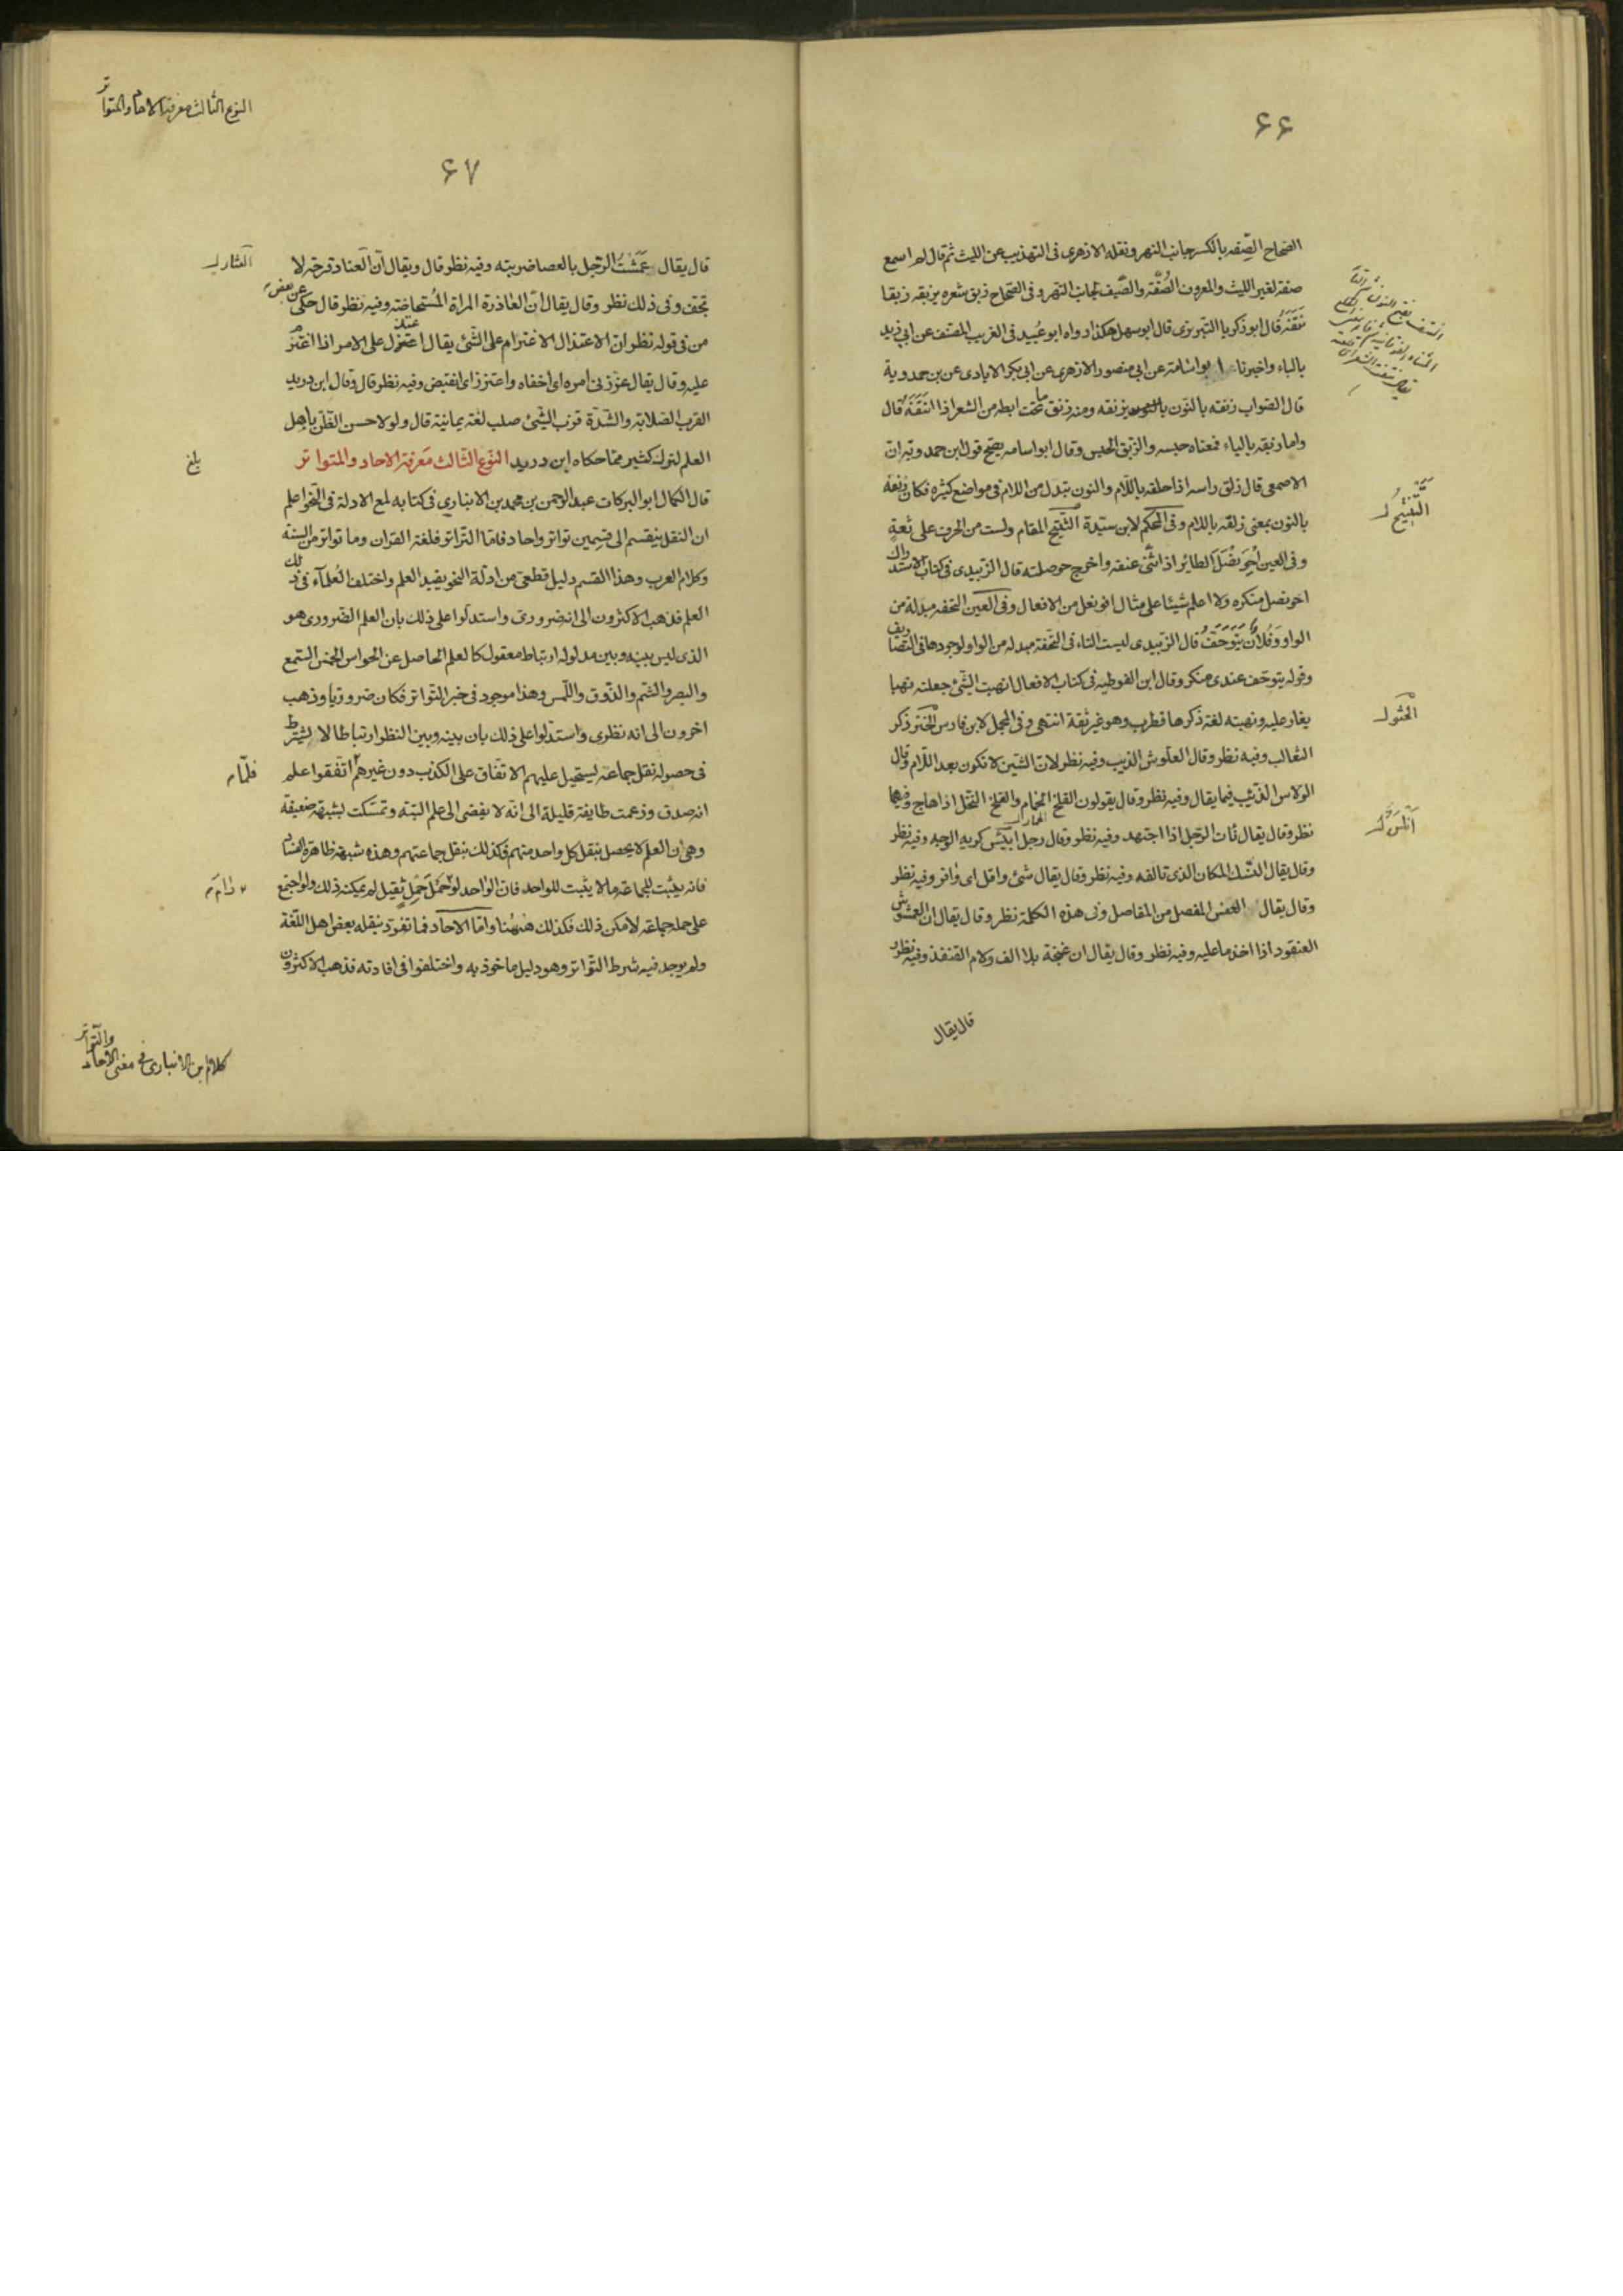 ٦٦
الصحاح الصفه بالكسر جانب النهر ونقله الازهرى فى التهذيب عن الليث ثم قال لم اسمع
صفة لغير الليث والمعروف الضفة والضيف لجانب النهر وفى الصحاح زبق شعره يزبقه زبقا
نتفه قال ابو زكريا التبريزى قال ابو سهل هكذا رواه ابو عبيد فى الغريب المصنف عن ابى زيد
بالباء واخبرنا ابو اسامة عن ابى منصور الازهرى عن ابى بكر الايادى عن بن حمدوية
قال الصواب زنقه بالنون يزنقه ومنه زنق ما تحت ابطه من الشعر اذا انتفه قال
واما زبقه بالباء فمعناه حبسه والزبق الحبس وقال ابو اسامه يصح قول ابن حمدويه ان
الاصمعى قال زلق راسه اذا حلقه باللام والنون تبدل من اللام فى مواضع كثيره فكان زنقه
بالنون بمعنى زلقه باللام وفى المحكم لابن سيدة المقام ولست من الحرف على ثقة
وفى العين احونصل الطائر اذا اثنى عنقه واخرج حوصلته قال الزبيدى فى كتاب الاستدراك
احونصل منكره ولا اعلم شيئا على مثال افونعل من الافعال وفى العين التحفه مبدلة من
الواو وفلان يتوحف قال الزبيدى ليست التاء فى التحفة مبدله من الواو لوجودها فى التصاريف
وقوله يتوحف عندى منكر وقال ابن القوطيه فى كتاب الافعال انهبت الشئ جعلته نهبا
يغار عليه ونهبته لغة ذكرها قطرب وهو غير ثقة انتهى وفى المجمل لابن فارس الختر ذكر
الثعالب وفيه نظر وقال العلوش الذيب وفيه نظر لان الشين لا تكون بعد اللام وقال
الولاس الذئب فيما يقال وفيه نظر وقال يقولون القلخ الحمار والقلخ الفحل اذا هاج وفيهما
نظر وقال يقال نات الرجل اذا اجتهد وفيه نظر وقال رجل كريه الوجه وفيه نظر
وقال يقال النسك المكان الذى تالفه وفيه نظر وقال يقال شئ وافل اى وافر وفيه نظر
وقال يقال المفصل من المفاصل وفى هذه الكلمة نظر وقال يقال ان العمشوش
العنقود اذا اخذ ما عليه وفيه نظر وقال يقال ان غنجة بلا الف ولام القنفذ وفيه نظر
قال يقال
النوع الثالث معرفة الاحاد والمتواتر
٦٧
قال يقال عمشت الرجل بالعصا ضربته وفيه نظر قال ويقال ان العناد قرحة لا
تجف وفى ذلك نظر وقال يقال ان الغاذرة المراة المستحاضة وفيه نظر قال حكى عن بعض
من فى قوله نظر ان الاعتذال الاعترام على الشئ يقال اعتذل على الامر اذا اعتزم
عليه وقال يقال عزز فى امره اى اخفاه واعتزز اى انقبض وفيه نظر قال وقال ابن دريد
القرب الصلابة والشدة قزب الشئ صلب لغة يمانية قال ولولا حسن الظن باهل
العلم لترك كثير مما حكاه ابن دريد النوع الثالث معرفة الاحاد والمتواتر
بلغ
قال الكمال ابو البركات عبد الرحمن بن محمد بن الانبارى فى كتابه لمع الادلة فى النحو اعلم
ان النقل ينقسم الى قسمين تواتر واحاد فاما التواتر فلغة القران وما تواتر من السنة
وكلام العرب وهذا القسم دليل قطعى من ادلة النحو يفيد العلم واختلف العلمآء فى ذلك
العلم فذهب الاكثرون الى انه ضرورى واستدلوا على ذلك بان العلم الضرورى هو
الذى ليس بينه وبين مدلوله ارتباط معقول كالعلم الحاصل عن الحواس الخمس السمع
والبصر والشم والذوق واللمس وهذا موجود فى خبر التواتر فكان ضروريا وذهب
اخرون الى انه نظرى واستدلوا على ذلك بان بينه وبين النظر ارتباطا لا يشترط
فى حصوله نقل جماعة يستحيل عليهم الاتفاق على الكذب دون غيرهم اتفقوا علم
فلما
انه صدق وزعمت طايفة قليلة الى انه لا يفضى الى علم البتة وتمسكت بشبهة ضعيفة
وهى ان العلم لا يحصل بنقل كل واحد منهم فكذلك بنقل جماعتهم وهذه شبهة ظاهرة الفساد
فانه يثبت للجماعة ما لا يثبت للواحد فان الواحد لو حمل حمل ثقيل لم يمكنه ذلك ولو اجتمع
على حمله جماعة لامكن ذلك فكذلك ههنا واما الاحاد فما تفرد بنقله بعض اهل اللغة
ولم يوجد فيه شرط التواتر وهو دليل ماخوذ به واختلفوا فى افادته فذهب الاكثرون
كلام بن الانبارى فى معنى الاحاد والتواتر